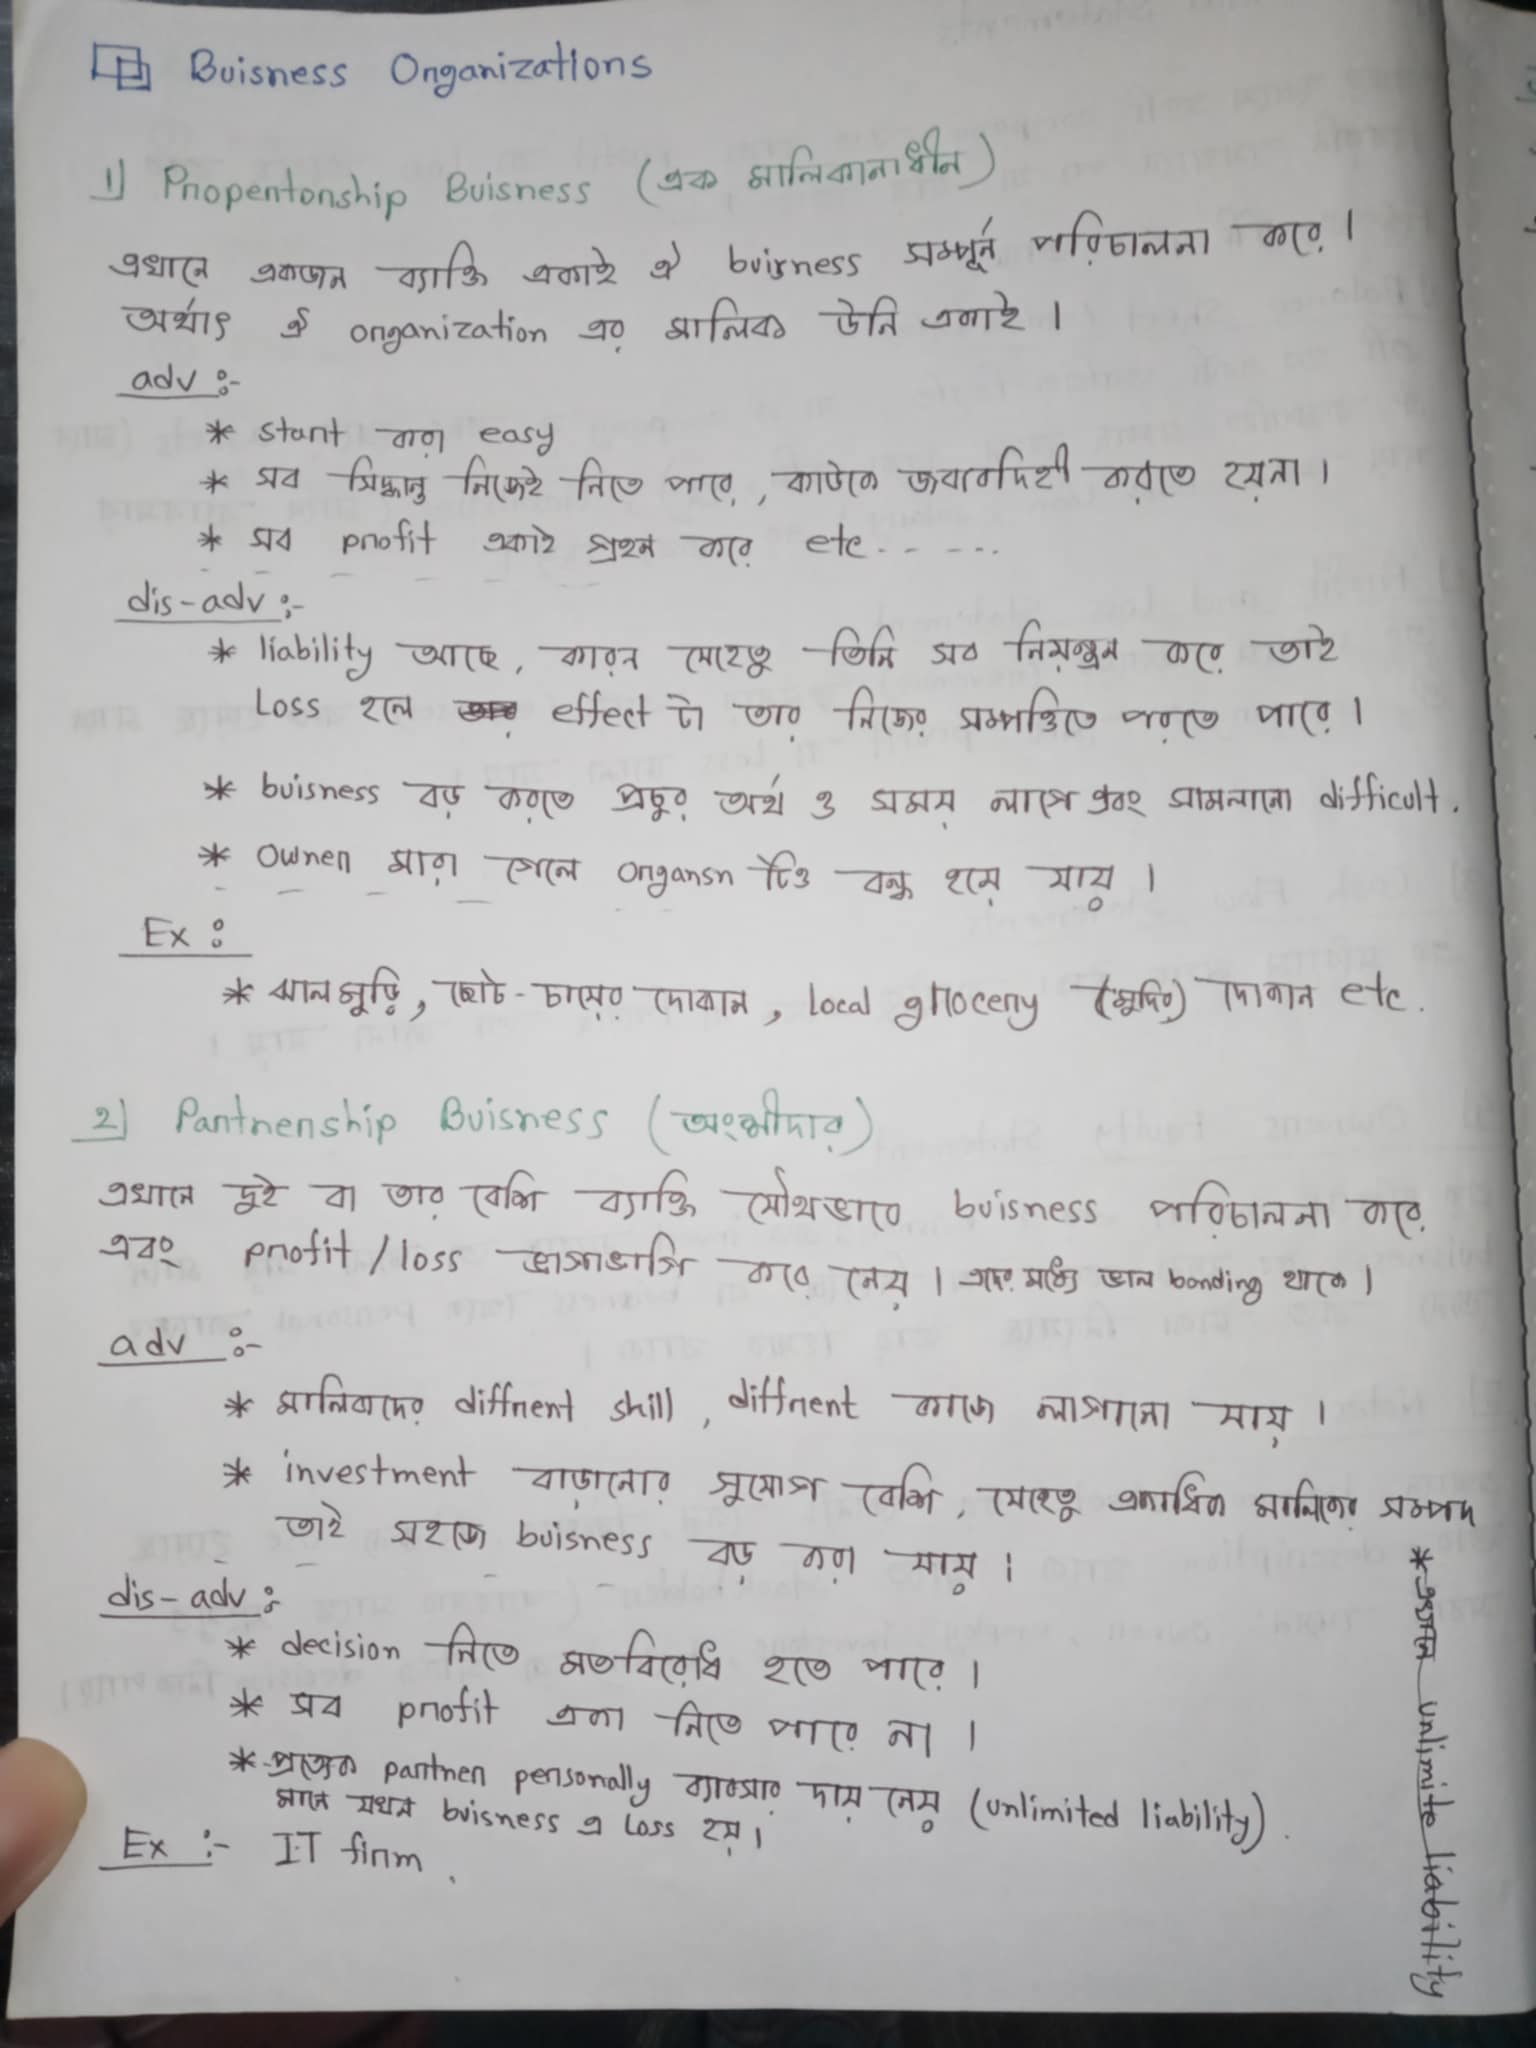 Buisness Organizations
1) Propertorship Buisness (এক মালিকানাধীন)
এখানে একজন ব্যাক্তি একাই ঐ buisness সম্পূর্ন পরিচালনা করে।
অর্থাৎ ঐ organization এর মালিক উনি একাই।
adv :-
* start করা easy
* সব সিদ্ধান্ত নিজেই নিতে পারে, কাউকে জবাবদিহী করতে হয়না।
* সব profit একাই গ্রহন করে etc.-----
dis-adv :-
* liability আছে, কারন যেহেতু তিনি সব নিয়ন্ত্রন করে তাই
Loss হলে effect টা তার নিজের সম্পত্তিতে পরতে পারে।
* buisness বড় করতে প্রচুর অর্থ ও সময় লাগে এবং সামলানো difficult.
* Owner মারা গেলে organsn টিও বন্ধ হয়ে যায়।
Ex :
* ঝালমুড়ি, ছোট-চায়ের দোকান, local grocery (মুদির) দোকান etc.
2) Partnership Buisness (অংশীদার)
এখানে দুই বা তার বেশি ব্যাক্তি যৌথভাবে buisness পরিচালনা করে
এবং profit/loss ভাগাভাগি করে নেয়। এদের মধ্যে ভাল bonding থাকে।
adv :-
* মালিকদের diffrent skill, diffrent কাজে লাগানো যায়।
* investment বাড়ানোর সুযোগ বেশি, যেহেতু একাধিক মালিকের সম্পদ
তাই সহজে buisness বড় করা যায়।
dis-adv :
* decision নিতে মতবিরোধি হতে পারে।
* সব profit একা নিতে পারে না।
* প্রত্যেক partner personally ব্যাবসার দায় নেয় (unlimited liability).
মানে যখন buisness এ Loss হয়।
Ex :- IT firm.
* এখানে unlimite liability